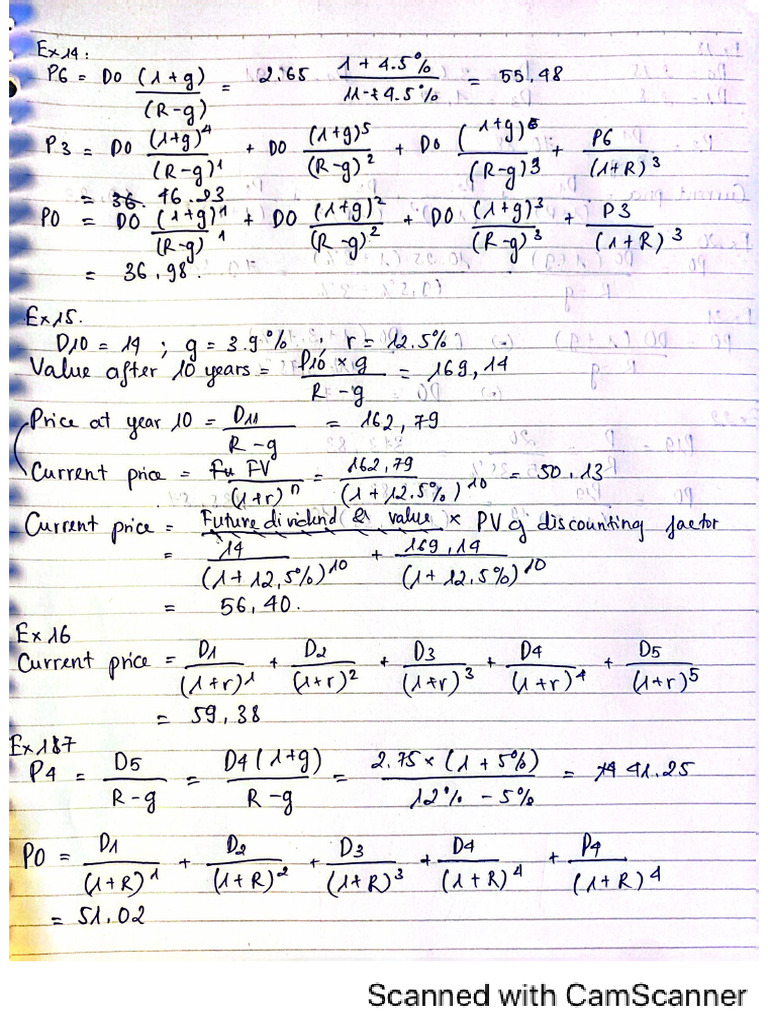 Ex14:
P6 = D0 (1+g) / (R-g) = 2.65 (1 + 4.5%) / (11-+4.5%) = 55,48
P3 = D0 (1+g)^4 / (R-g)^1 + D0 (1+g)^5 / (R-g)^2 + D0 (1+g)^6 / (R-g)^3 + P6 / (1+R)^3
= 46.93
P0 = D0 (1+g)^1 / (R-g)^1 + D0 (1+g)^2 / (R-g)^2 + D0 (1+g)^3 / (R-g)^3 + P3 / (1+R)^3
= 36,98.
Ex15.
D10 = 14 ; g = 3.9% , r = 12.5%
Value after 10 years = P10 × g / R-g = 169,14
Price at year 10 = D11 / R-g = 162,79
Current price = FV / (1+r)^n = 162,79 / (1+12.5%)^10 = 50.13
Current price = Future dividend & value × PV g discounting factor
= 14 / (1+12,5%)^10 + 169,14 / (1+12,5%)^10
= 56,40.
Ex16
Current price = D1 / (1+r)^1 + D2 / (1+r)^2 + D3 / (1+r)^3 + D4 / (1+r)^4 + D5 / (1+r)^5
= 59,38
Ex187
P4 = D5 / R-g = D4(1+g) / R-g = 2.75×(1+5%) / 12% - 5% = 41.25
P0 = D1 / (1+R)^1 + D2 / (1+R)^2 + D3 / (1+R)^3 + D4 / (1+R)^4 + P4 / (1+R)^4
= 51.02
Scanned with CamScanner